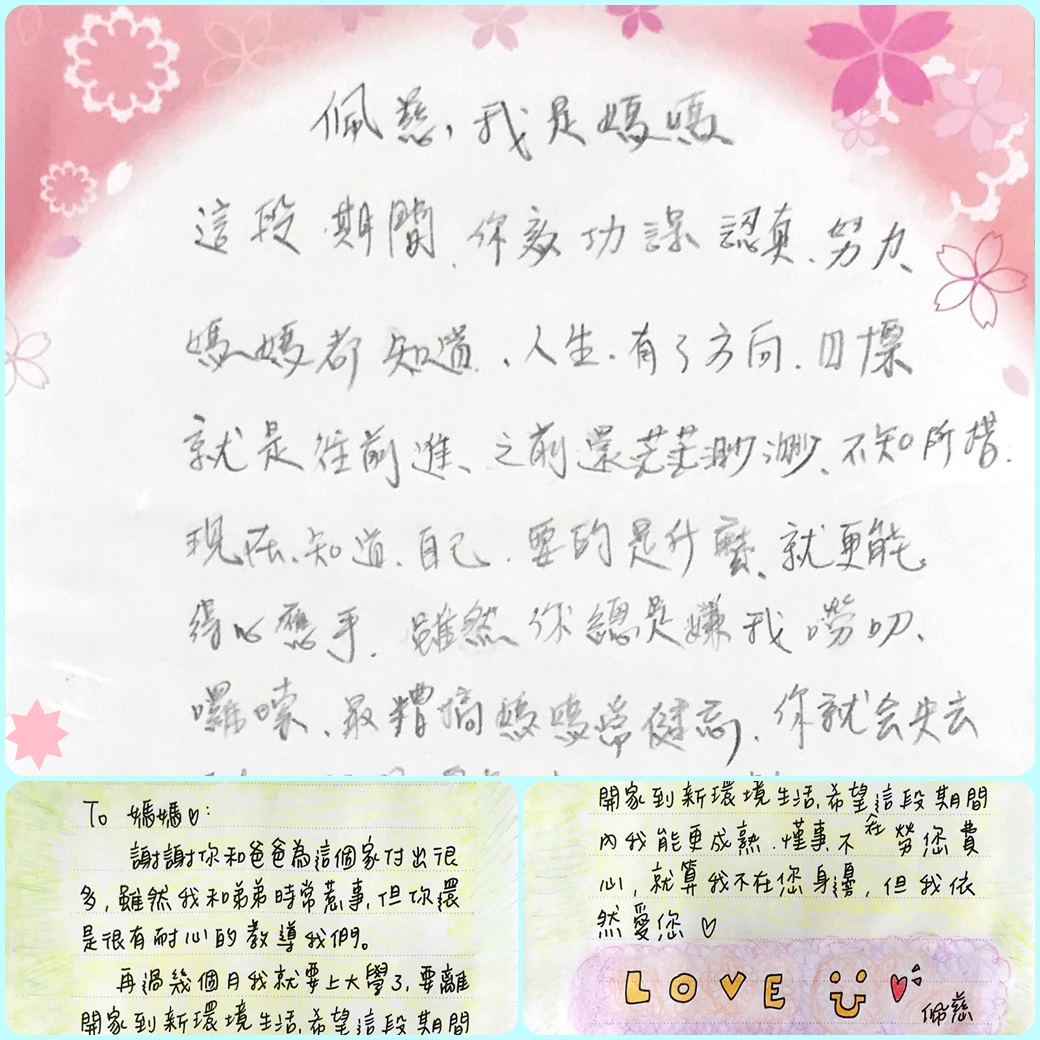 佩慈,我是媽媽
這段期間、你效功課認真、努力、
媽媽都知道、人生、有了方向、目標
就是往前進、之前還茫茫渺渺、不知所措.
現在、知道、自己、要的是什麼、就更能
得心應手、雖然你總是嫌我嘮叨、
囉嗦、最糟搞媽媽常健忘、你就会失去
To 媽媽♡:
謝謝你和爸爸為這個家付出很
多,雖然我和弟弟時常惹事,但你還
是很有耐心的教導我們。
再過幾個月我就要上大學了,要離
開家到新環境生活,希望這段期間
開家到新環境生活,希望這段期間
內我能更成熟、懂事,不在勞您費
心,就算我不在您身邊,但我依
然愛您♡
LOVE
佩慈